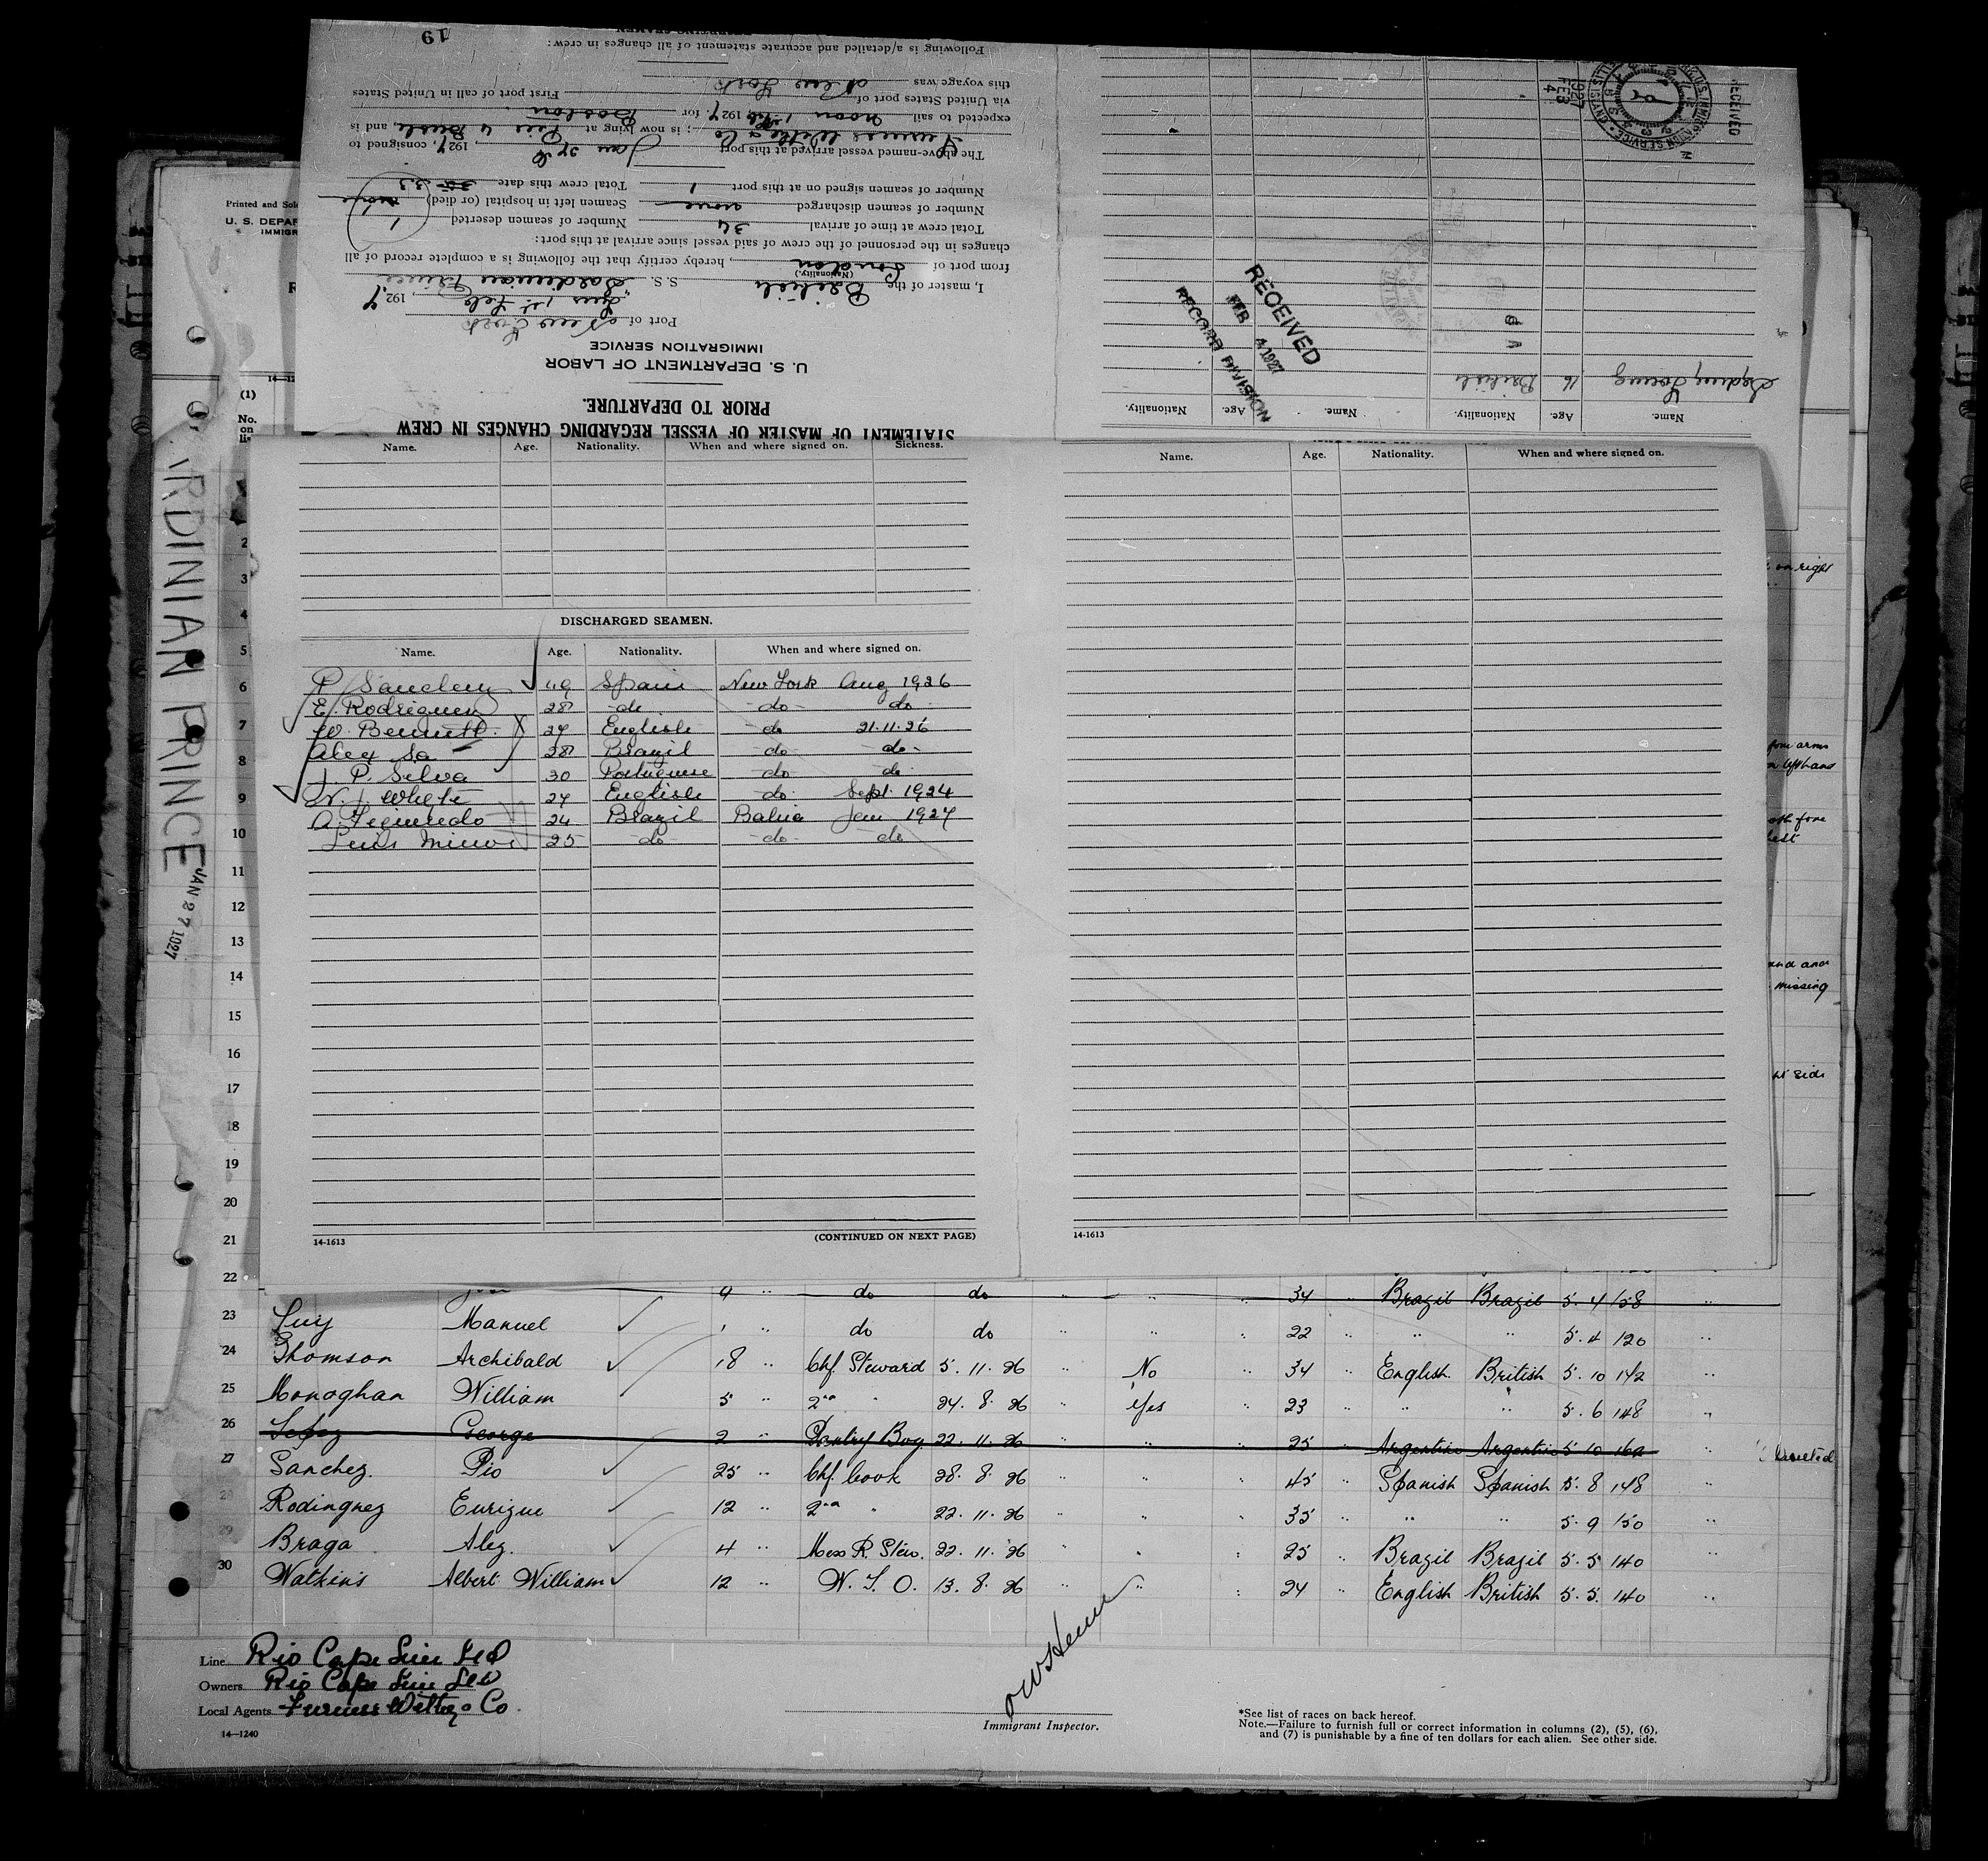 19
Following is a/detailed and accurate statement of all changes in crew:
this voyage was New York
via United States port of First port of call in United States
expected to sail noon 1 Feb 1927 for Boston
Furness Withy & Co; is now lying at Pier 4 Bush, and is
The above-named vessel arrived at this port Jan 27th, 1927, consigned to
Number of seamen signed on at this port 1 Total crew this date 33
Number of seamen discharged none Seamen left in hospital (or died) none
Total crew at time of arrival 34 Number of seamen deserted 1
changes in the personnel of the crew of said vessel since arrival at this port:
from port of London, hereby certify that the following is a complete record of all
(Nationality.)
I, master of the British S. S. Sardinian Prince
1st Feb, 1927
Port of New York
IMMIGRATION SERVICE
U. S. DEPARTMENT OF LABOR
PRIOR TO DEPARTURE.
STATEMENT OF MASTER OF VESSEL REGARDING CHANGES IN CREW
RECEIVED
1927 FEB 4
RECEIVED
FEB 4 1927
RECORD DIVISION
16 British
Name. Age. Nationality. Name. Age. Nationality.
Printed and Sol
U. S. DEPAR
IMMIGR
14-12
(1)
No.
on
lis
RDINIAN PRINCE JAN 27 1927
Name. Age. Nationality. When and where signed on. Sickness.
Name. Age. Nationality. When and where signed on.
DISCHARGED SEAMEN.
Name. Age. Nationality. When and where signed on.
P. Sanchez 49 Spain New York Aug 1926
E. Rodriguez 28 do do do
W. Bennett 27 English do 21.11.26
Alex Sa 28 Brazil do do
J. P. Silva 30 Portuguese do do
N. J. Whyte 27 English do Sept. 1924
A. Figueredo 24 Brazil Bahia Jan 1927
25 do do do
14-1613 (CONTINUED ON NEXT PAGE)
14-1613
on right
fore arms
left hand
fore
and and
missing
side
2
3
4
5
6
7
8
9
10
11
12
13
14
15
16
17
18
19
20
21
22
9 do do 34 Brazil Brazil 5. 4 158
23 Luiz Manuel 1 do do 22 5. 4 120
24 Thomson Archibald 18 Chf. Steward 5. 11. 26 No 34 English British 5. 10 142
25 Monaghan William 5 2nd 24. 8. 26 Yes 23 5. 6 148
26 Lopez George 2 Pantry Boy 22. 11. 26 25 Argentine Argentine 5 10 162 Deserted
27 Sanchez. Pio 25 Chf. Cook 28. 8. 26 45 Spanish Spanish 5. 8 148
28 Rodinguez Enrique 12 2nd 22. 11. 26 35 5. 9 150
29 Braga Alez. 4 Mess R. Stew. 22. 11. 26 25 Brazil Brazil 5. 5 140
30 Watkins Albert William 12 W. T. O. 13. 8. 26 24 English British 5. 5. 140
Line Rio Cape Line Ltd
Owners Rio Cape Line Ltd
Local Agents Furness Withy & Co.
14—1240
Immigrant Inspector.
*See list of races on back hereof.
Note.—Failure to furnish full or correct information in columns (2), (5), (6),
and (7) is punishable by a fine of ten dollars for each alien. See other side.